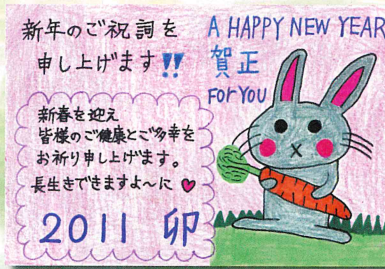 新年のご祝詞を
申し上げます!!
A HAPPY NEW YEAR
賀正
For YOU
新春を迎え
皆様のご健康とご多幸を
お祈り申し上げます。
長生きできますよ〜に♥
2011 卯